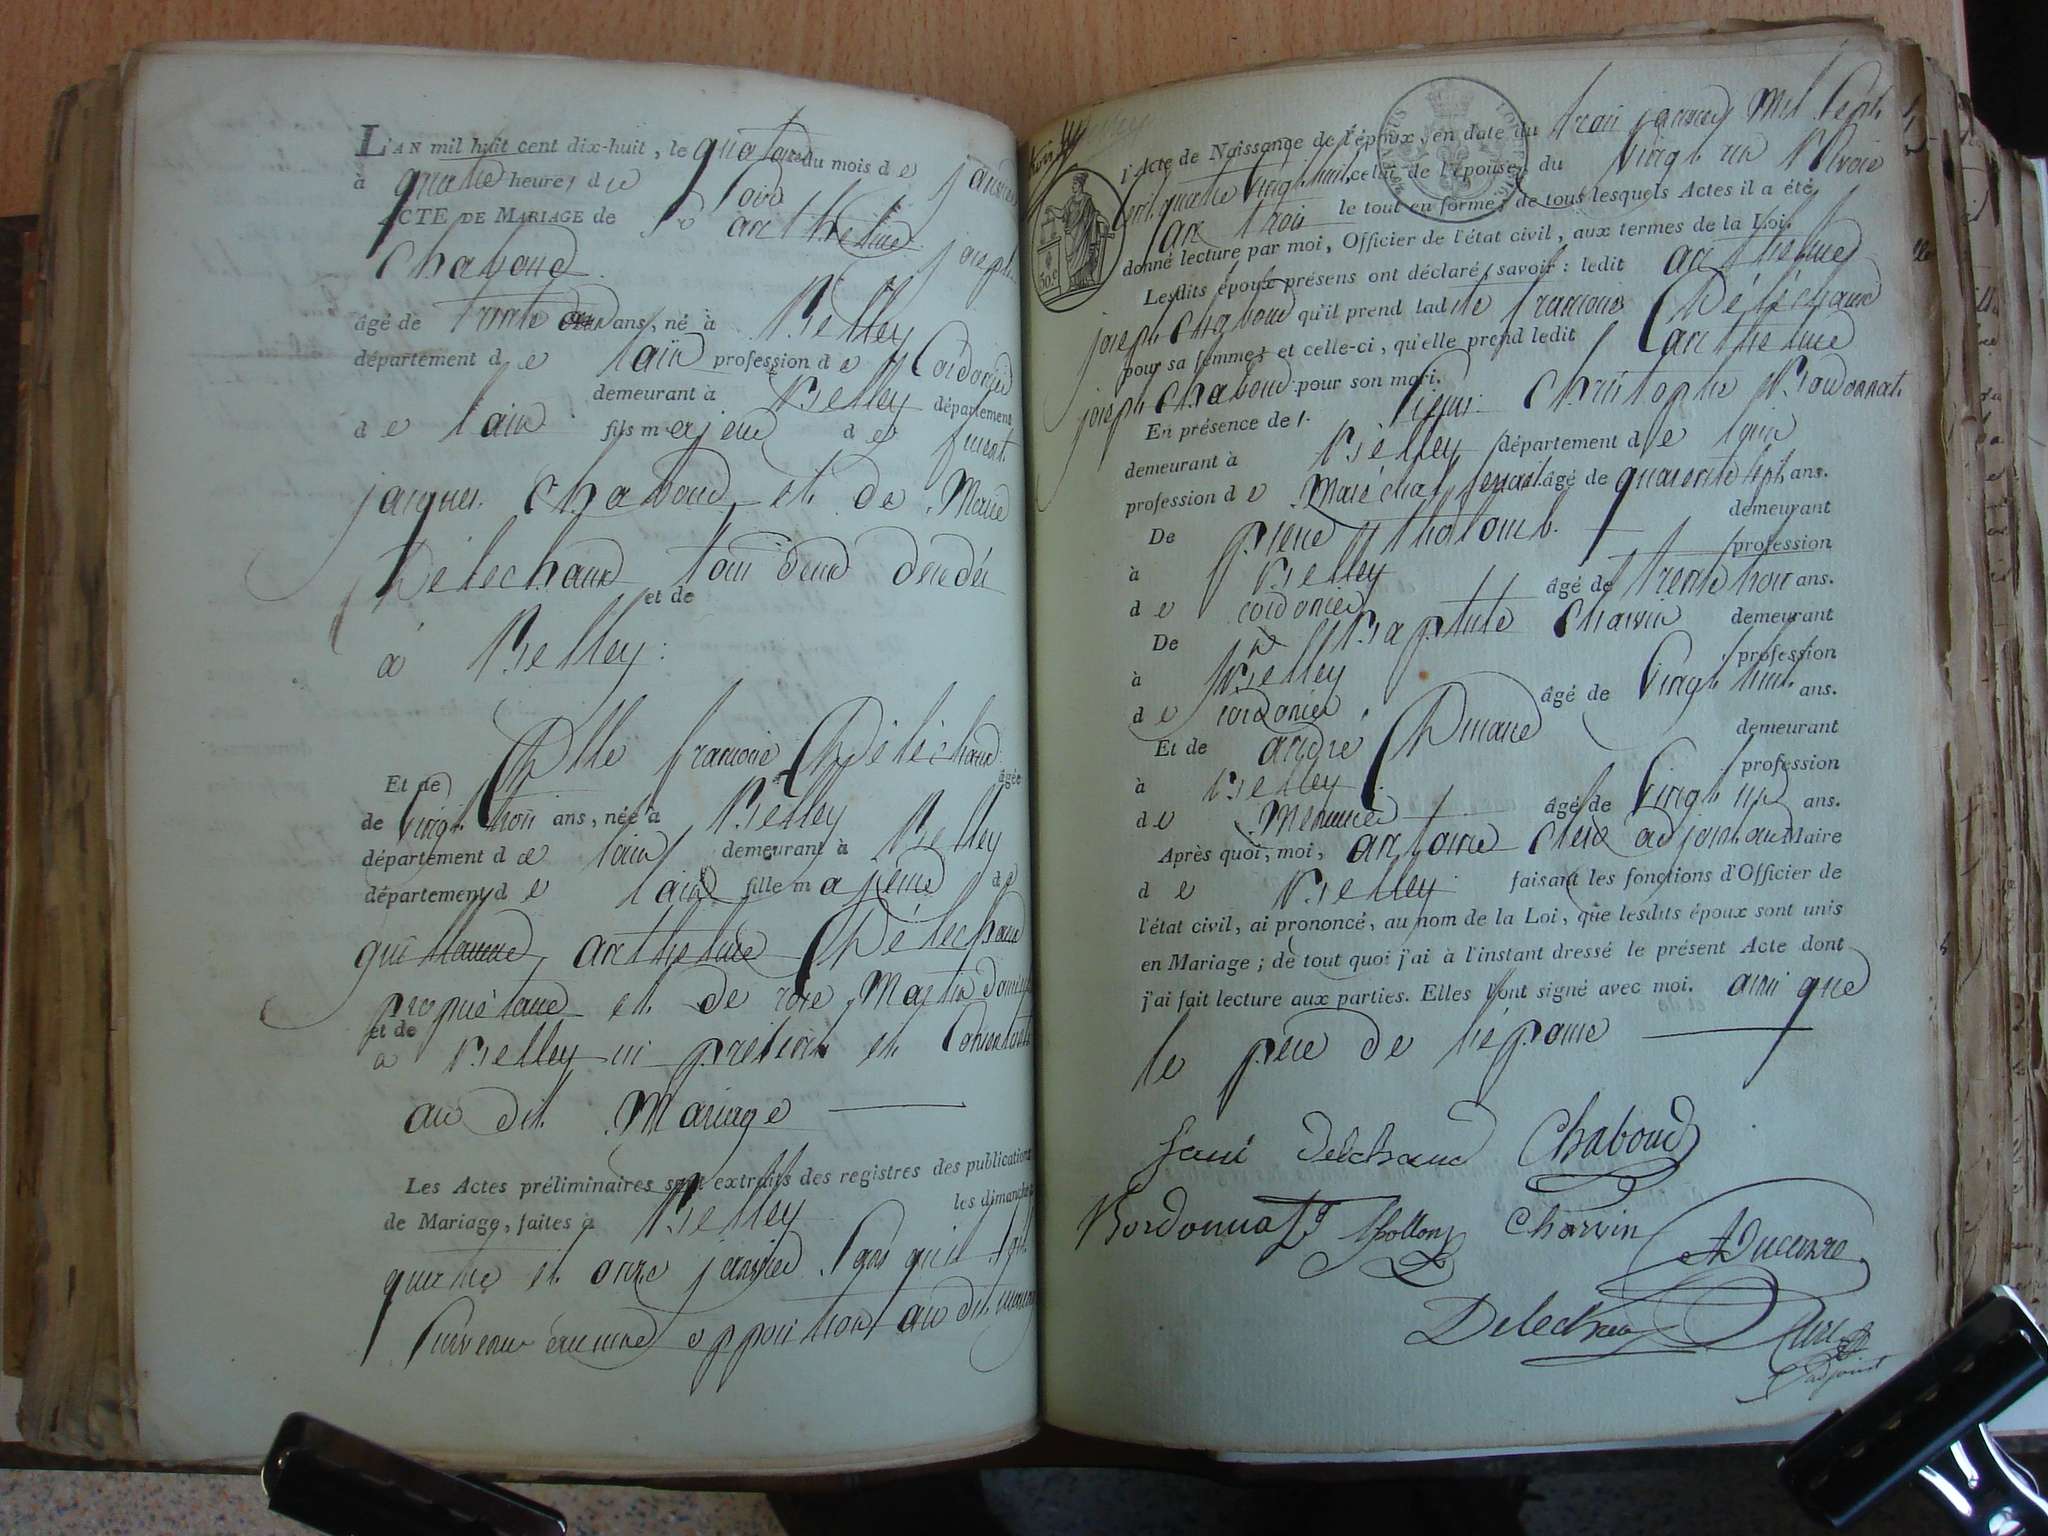 L'AN mil huit cent dix-huit, le quatorze du mois de janvier
à quatre heures de soir
ACTE DE MARIAGE de Sr anthelme joseph
Chaboud
âgé de trente ans, né à Belley
département de lain profession de Cordonier
demeurant à Belley département
de lain fils majeur de
jacques Chaboud et de Marie
Délechaud tous deux décédés
et de
à Belley :
Et de Dlle francoise Délechaud âgée
de vingt trois ans, née à Belley
département de lain demeurant à Belley
département de lain fille majeure de
guillaume anthelme Délechaud
propriétaire et de rose Martin
et de
a Belley ici présens et consentants
au dit Mariage
Les Actes préliminaires sont extraits des registres des publications
de Mariage, faites à Belley les dimanches
quatre et onze janvier sans qu'il soit
survenu aucune opposition au dit mariage
l'Acte de Naissance de l'époux, en date du trois janvier mil sept
cent quatre vingt huit, celui de l'épouse du vingt un
lan trois le tout en forme; de tous lesquels Actes il a été
donné lecture par moi, Officier de l'état civil, aux termes de la Loi.
Lesdits époux présens ont déclaré savoir : ledit anthelme
joseph Chaboud qu'il prend ladite francoise Délechaud
pour sa femme; et celle-ci, qu'elle prend ledit anthelme
joseph Chaboud pour son mari.
En présence de Sieurs Christophe Bordonnat
demeurant à Belley département de lain
profession de Maréchal ferrant âgé de quarente sept ans.
De pierre demeurant
à Belley profession
de cordonier âgé de trente trois ans.
De Baptiste Charvin demeurant
à Belley profession
de cordonier âgé de vingt huit ans.
Et de andré demeurant
à Belley profession
de Menuisier âgé de vingt ans.
Après quoi, moi, antoine Clerc adjoint au Maire
de Belley faisant les fonctions d'Officier de
l'état civil, ai prononcé, au nom de la Loi, que lesdits époux sont unis
en Mariage ; de tout quoi j'ai à l'instant dressé le présent Acte dont
j'ai fait lecture aux parties. Elles l'ont signé avec moi. ainsi que
le père de l'épouse
Delechaud Chaboud
Bordonnat Charvin
Delechaud Clerc
adjoint